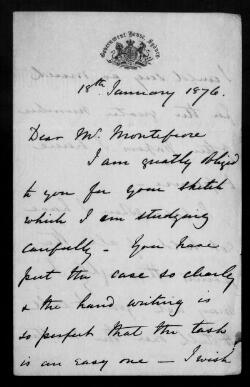 Government House, Sydney
18th January 1876.
Dear Mr. Montefiore
I am greatly obliged
to you for your sketch
which I am studying
carefully – You have
put the case so clearly
& the hand writing is
so perfect that the task
is an easy one – I wish